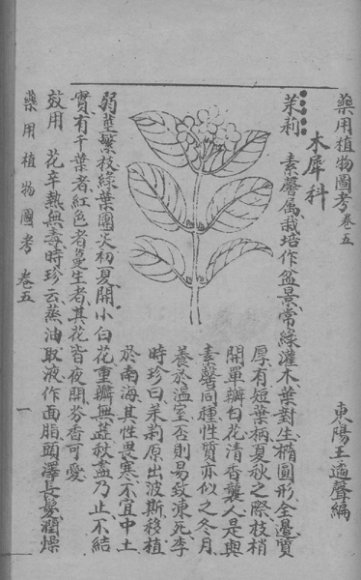 藥用植物圖考卷五
東陽王遁聲編
木犀科
茉莉　素馨属栽培作盆景常綠灌木葉對生橢圓形全邊質
厚有短葉柄夏秋之際枝梢
開單瓣白花清香襲人是與
素馨同種性質亦似之冬月
養於溫室否則易致凍死李
時珍曰茉莉原出波斯移植
於南海其性畏寒不宜中土
弱莖繁枝綠葉團尖初夏開小白花重瓣無蕊秋盡乃止不結
實有千葉者紅色者蔓生者其花皆夜開芬香可愛
效用　花辛熱無毒時珍云蒸油取液作面脂頭澤長髮潤燥
藥用植物圖考　卷五
一